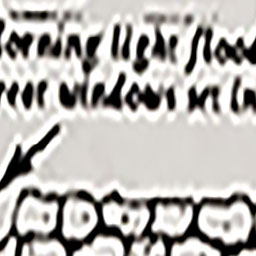 orning light floo
rear windows set in